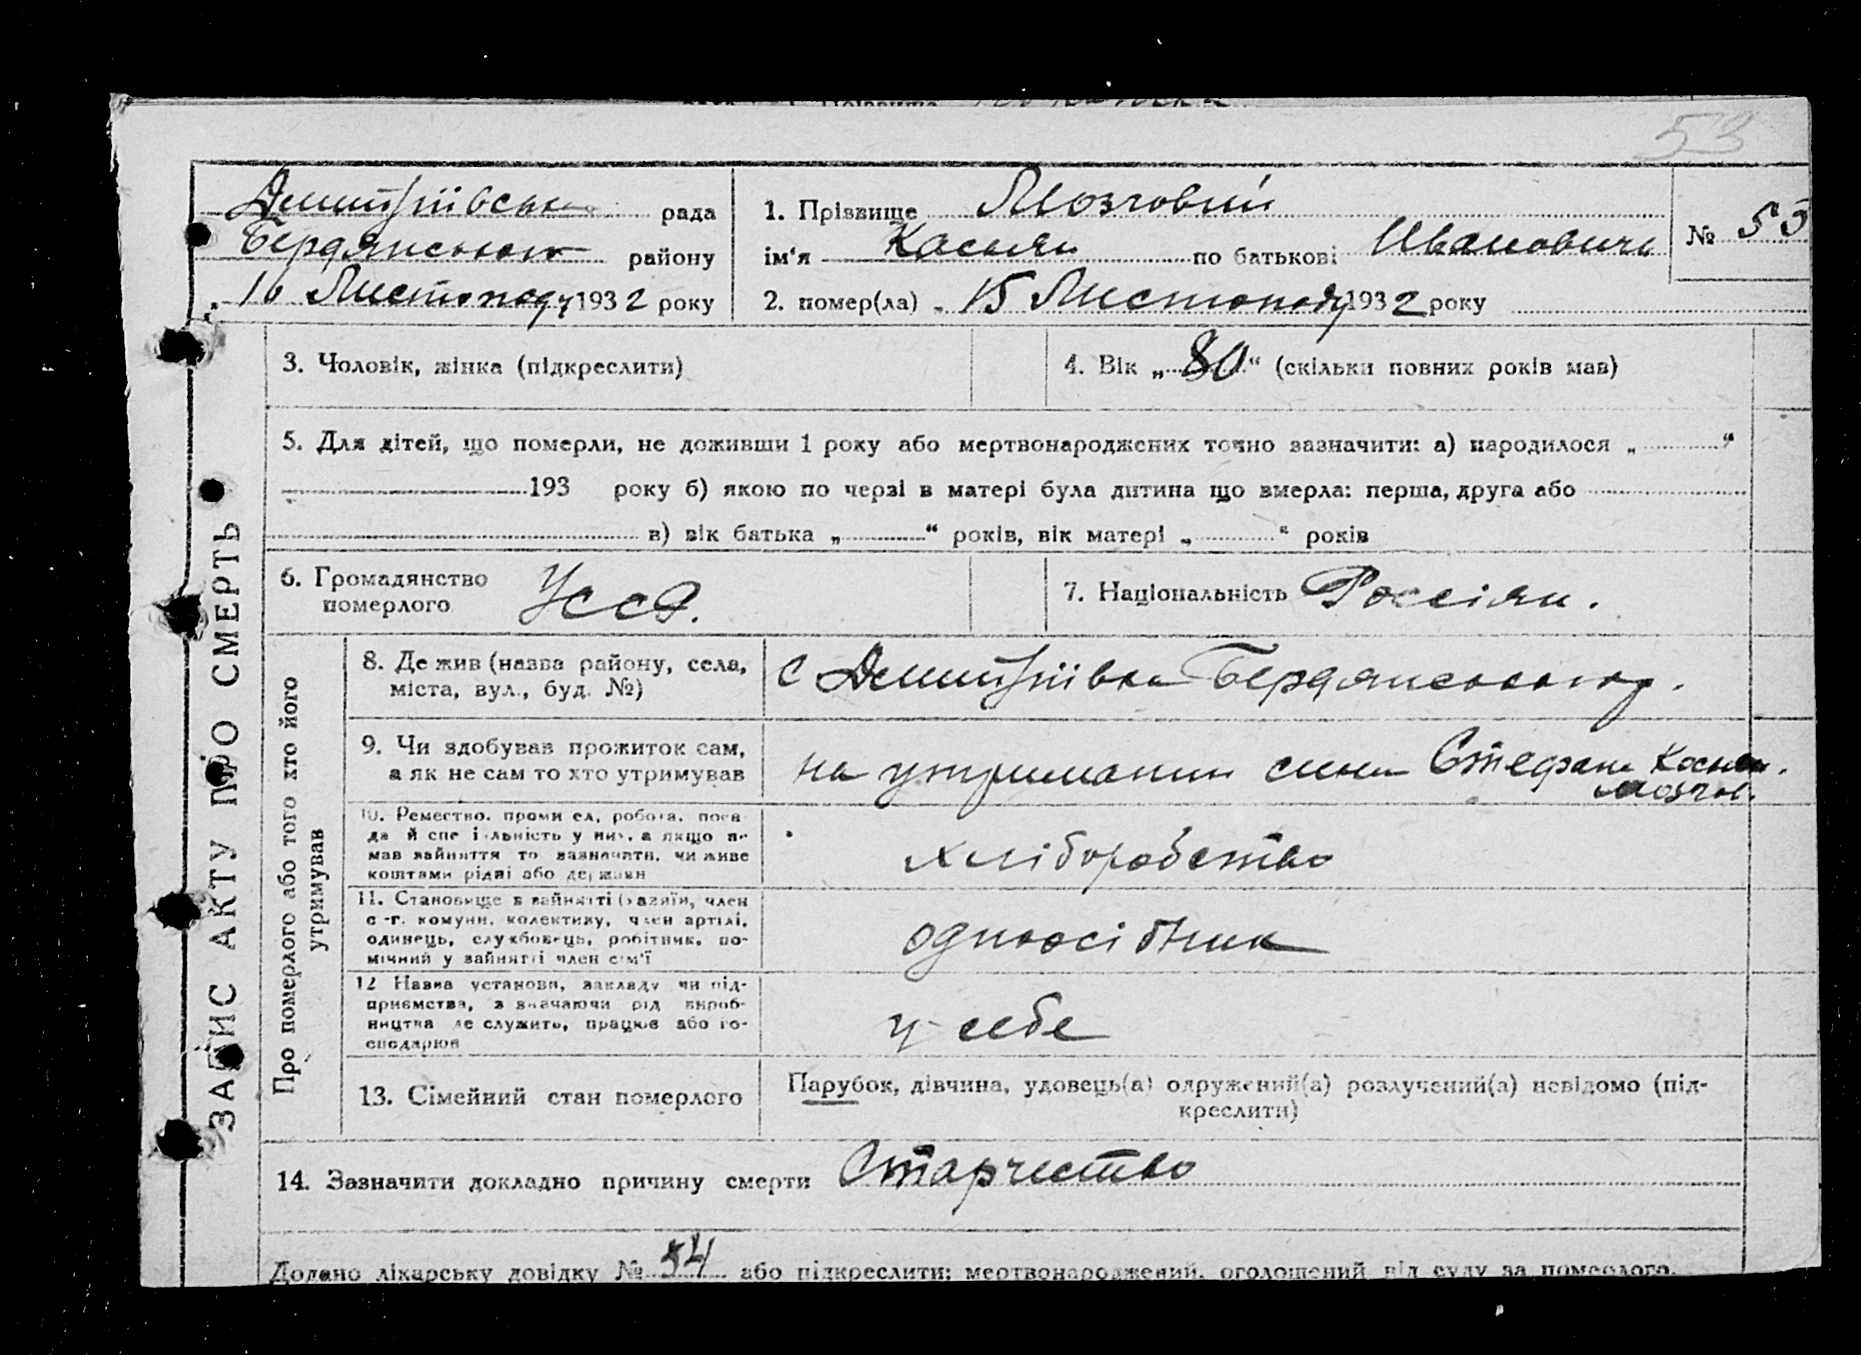 53
Дмитріївська рада
Бердянського району
„16 Листопаду 1932 року
1. Прізвище Мозговий
ім'я Касьян по батькові Иванович
2. помер(ла) „15 Листопаду 1932 року
№ 53
3. Чоловік, жінка (підкреслити)
4. Вік „80" (скільки повних років мав)
5. Для дітей, що померли, не доживши 1 року або мертвонароджених точно зазначити: а) народилося „ "
193 року б) якою по черзі в матері була дитина що вмерла: перша, друга або
в) вік батька „ " років, вік матері „ " років
6. Громадянство
померлого УССР.
7. Національність Россіян.
ЗАПИС АКТУ ПРО СМЕРТЬ
Про померлого або того хто його
утримував
8. Де жив (назва району, села,
міста, вул., буд. №)
с Дмитріївка Бердянського р.
9. Чи здобував прожиток сам,
а як не сам то хто утримував
на утриманни сина Стефана Касьян.
Мозгов.
10. Ремество, промисел, робота, поса-
да й спеціяльність у них, а якщо не
мав зайняття то зазначити, чи живе
коштами рідні або держави
хліборобство
11. Становище в зайнятті (хазяїн, член
с.-г. комуни, колективу, член артілі,
одинець, службовець, робітник, по-
мічний у зайнятті член сім'ї
одноосібник
12 Назва установи, закладу чи під-
приємства, зазначаючи рід вироб-
ництва де служить, працює або го-
сподарює
у себе
13. Сімейний стан померлого
Парубок, дівчина, удовець(а) одружений(а) розлучений(а) невідомо (під-
креслити)
14. Зазначити докладно причину смерти Старчество
Додано лікарську довідку № 54 або підкреслити: мертвонароджений, оголошений від суду за померлого.